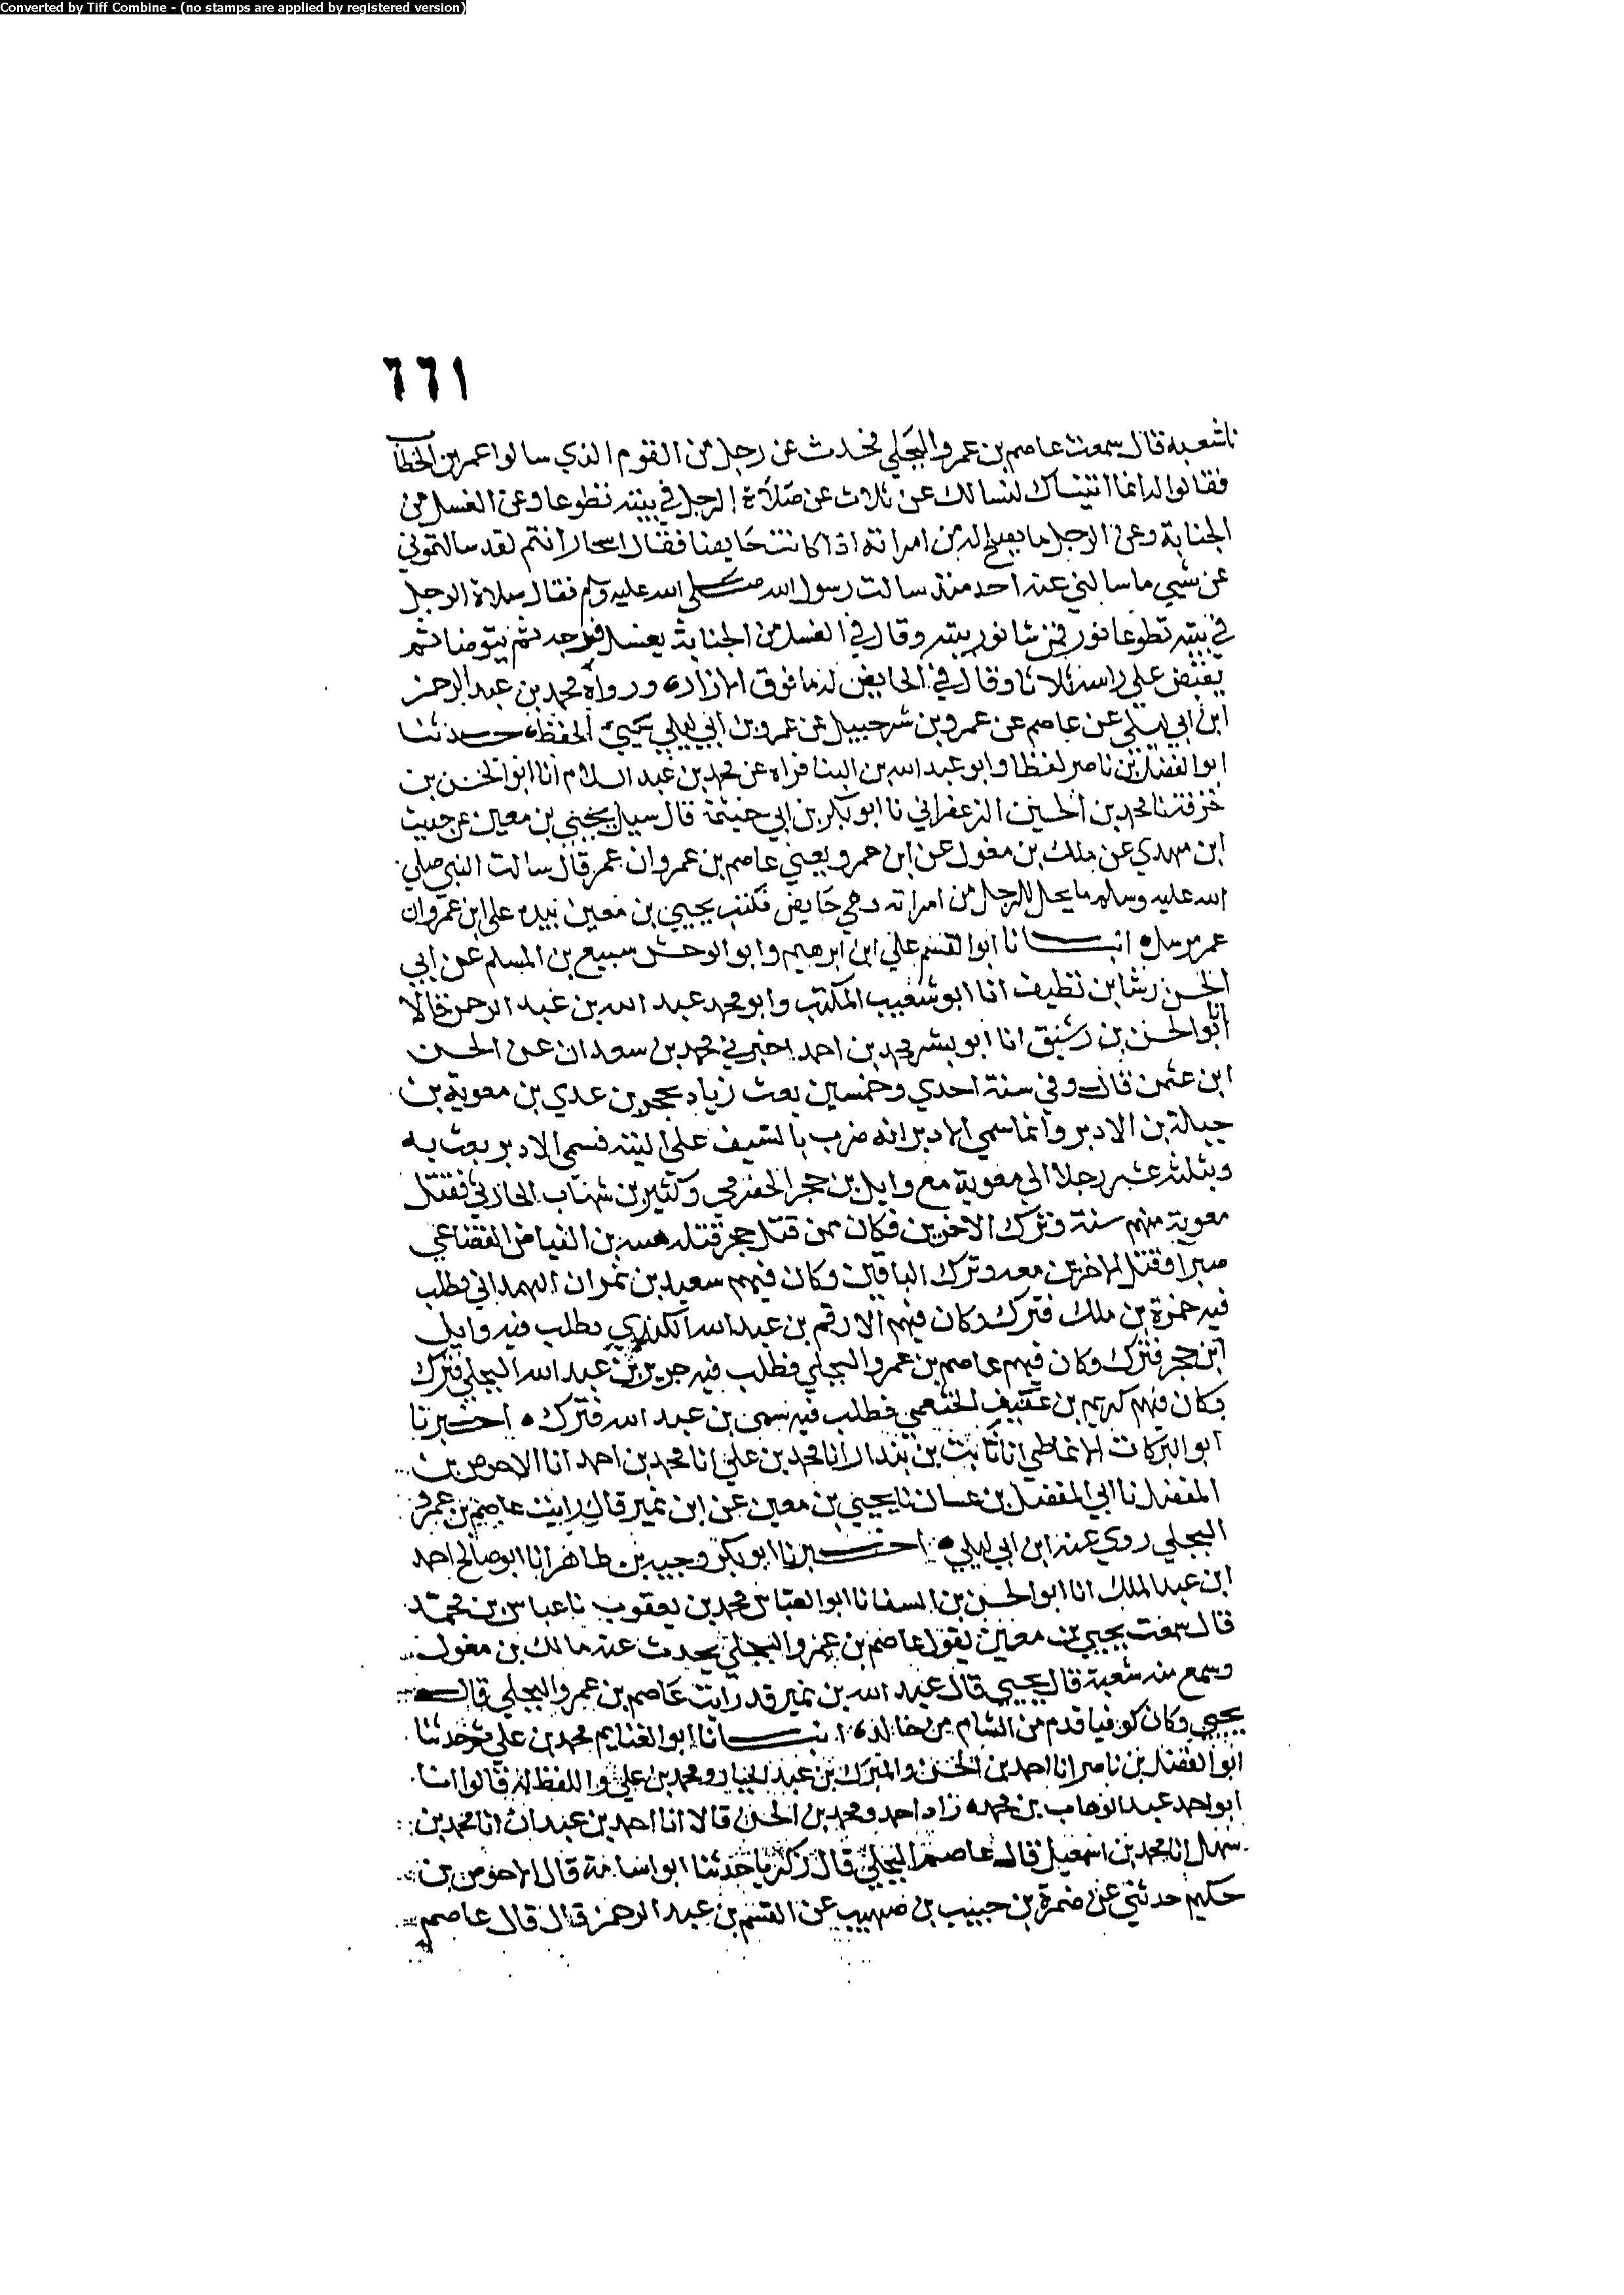 Converted by Tiff Combine - (no stamps are applied by registered version)
٦٦١
نا شعبة قال سمعت عاصم بن عمرو البجلي يحدث عن رجل من القوم الذي سالوا عمر بن الخطاب
فقالوا له انما اتيناك لنسالك عن ثلاث عن صلاة الرجل في بيته تطوعا وعن الغسل من
الجنابة وعن الرجل ما يصلح له من امراته اذا كانت حايضا فقال اسحار انتم لقد سالتموني
عن شيي ما سالني عنه احد منذ سالت رسول الله صلى الله عليه وسلم فقال صلاة الرجل
في بيته تطوعا نور فمن شا نور بيته وقال في الغسل من الجنابة يغسل فرجه ثم يتوضا ثم
يفيض على راسه ثلاثا وقال في الحايض له ما فوق الازار ورواه محمد بن عبد الرحمن
ابن ابي ليلى عن عاصم عن عمرو بن شرحبيل عن عمرو بن ابي ليلي الحفظ حدثنا
ابو الفضل بن ناصر لفظا وابو عبد الله بن البنا قراه عن محمد بن عبد السلام انا ابو الحسن بن
خزفة نا محمد بن الحسين الزعفراني نا ابو بكر بن ابي خيثمة قال سيل يحيى بن معين عن حديث
ابن مهدي عن ملك بن مغول عن ابن عمرو يعني عاصم بن عمرو ان عمر قال سالت النبي صلي
الله عليه وسلم ما يحل للرجل من امراته وهي حايض فكتب يحيي بن معين بيده على ابن عمرو ان
عمر مرسل انبانا ابو القسم علي ابن ابرهيم وابو الوحش سبيع بن المسلم عن ابي
الحسن رشا بن نظيف انا ابو شعيب المكتب وابو محمد عبد الله بن عبد الرحمن قالا
انا ابو الحسن بن رشيق انا ابو بشر محمد بن احمد اخبرني محمد بن سعدان عن الحسن
ابن عثمن قال وفي سنة احدي وخمسين بعث زياد بحجر بن عدي بن معوية بن
جبلة بن الادبر وانما سمي الادبر انه ضرب بالسيف على اليته فسمى الادبر بعث به
وبثلثة عشر رجلا الى معوية مع وايل بن حجر الحضرمي وكثير بن شهاب الحارثي فقتل
معوية منهم ستة وترك الاخرين فكان ممن قتل حجر قتله هدبة بن الفياض القضاعي
صبرا وقتل الاخرين معه وترك الباقين وكان فيهم سعيد بن نمران الهمداني فطلب
فيه حمزة بن ملك فترك وكان فيهم الارقم بن عبد الله الكندي فطلب فيه وايل
ابن حجر فترك وكان فيهم عاصم بن عمرو البجلي فطلب فيه جرير بن عبد الله البجلي فترك
وكان فيهم كريم بن عفيف الخثعمي فطلب فيه شمر بن عبد الله فترك اخبرنا
ابو البركات الانماطي انا ثابت بن بندار انا محمد بن علي انا محمد بن احمد انا الاحوص بن
المفضل نا ابي المفضل بن غسان نا يحيى بن معين عن ابن نمير قال رايت عاصم بن عمرو
البجلي روي عنه ابن ابي ليلي اخبرنا ابو بكر وجيه بن طاهر انا ابو صالح احمد
ابن عبد الملك انا ابو الحسن بن السقا نا ابو العباس محمد بن يعقوب نا عباس بن محمد
قال سمعت يحيي بن معين يقول عاصم بن عمرو البجلي يحدث عنه مالك بن مغول
وسمع منه شعبة قال يحيي قال عبد الله بن نمير قد رايت عاصم بن عمرو البجلي قال
يحيى وكان كوفيا قدم من الشام من خالد انبانا ابو الغنايم محمد بن علي ثم حدثنا
ابو الفضل بن ناصر انا احمد بن الحسن والمبرك بن عبد الجبار ومحمد بن علي واللفظ له قالوا انا
ابو احمد عبد الوهاب بن محمد زاد احمد ومحمد بن الحسن قالا انا احمد بن عبدان انا محمد بن
سهل انا محمد بن اسمعيل قال عاصم البجلي قال زكريا حدثنا ابو اسامة قال الاحوص بن
حكيم حدثني عن ضمرة بن حبيب بن صهيب عن القسم بن عبد الرحمن قال قال عاصم